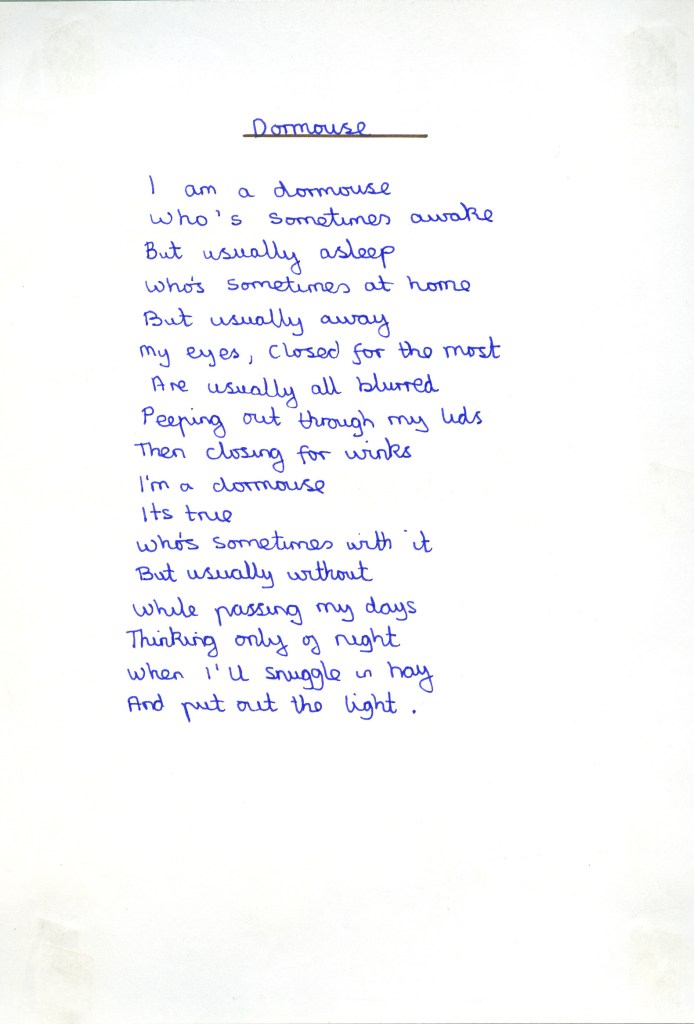 Dormouse
I am a dormouse
Who's sometimes awake
But usually asleep
Who's sometimes at home
But usually away
My eyes, closed for the most
Are usually all blurred
Peeping out through my lids
Then closing for winks
I'm a dormouse
Its true
Who's sometimes with it
But usually without
While passing my days
Thinking only of night
When I'll snuggle in hay
And put out the light.